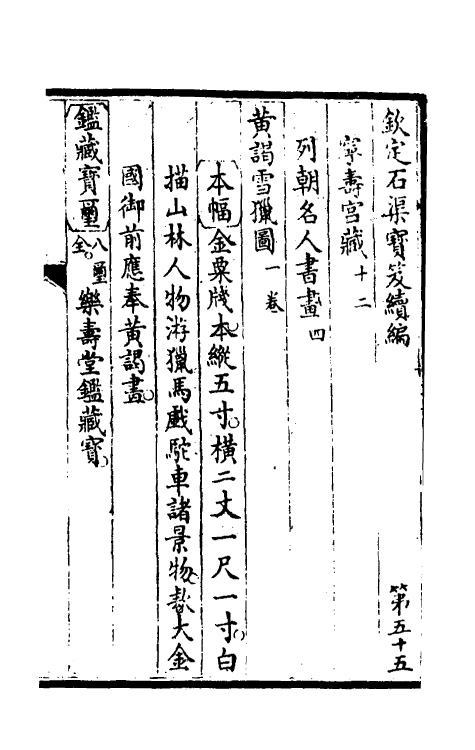 欽定石渠寶笈續編 第五十五
寧壽宮藏十二
列朝名人書畫四
黃謁雪獵圖一卷
本幅金粟牋本縱五寸橫二丈一尺一寸白
描山林人物游獵馬戲駝車諸景物款大金
國御前應奉黃謁畫
鑑藏寶璽八璽全樂壽堂鑑藏寶